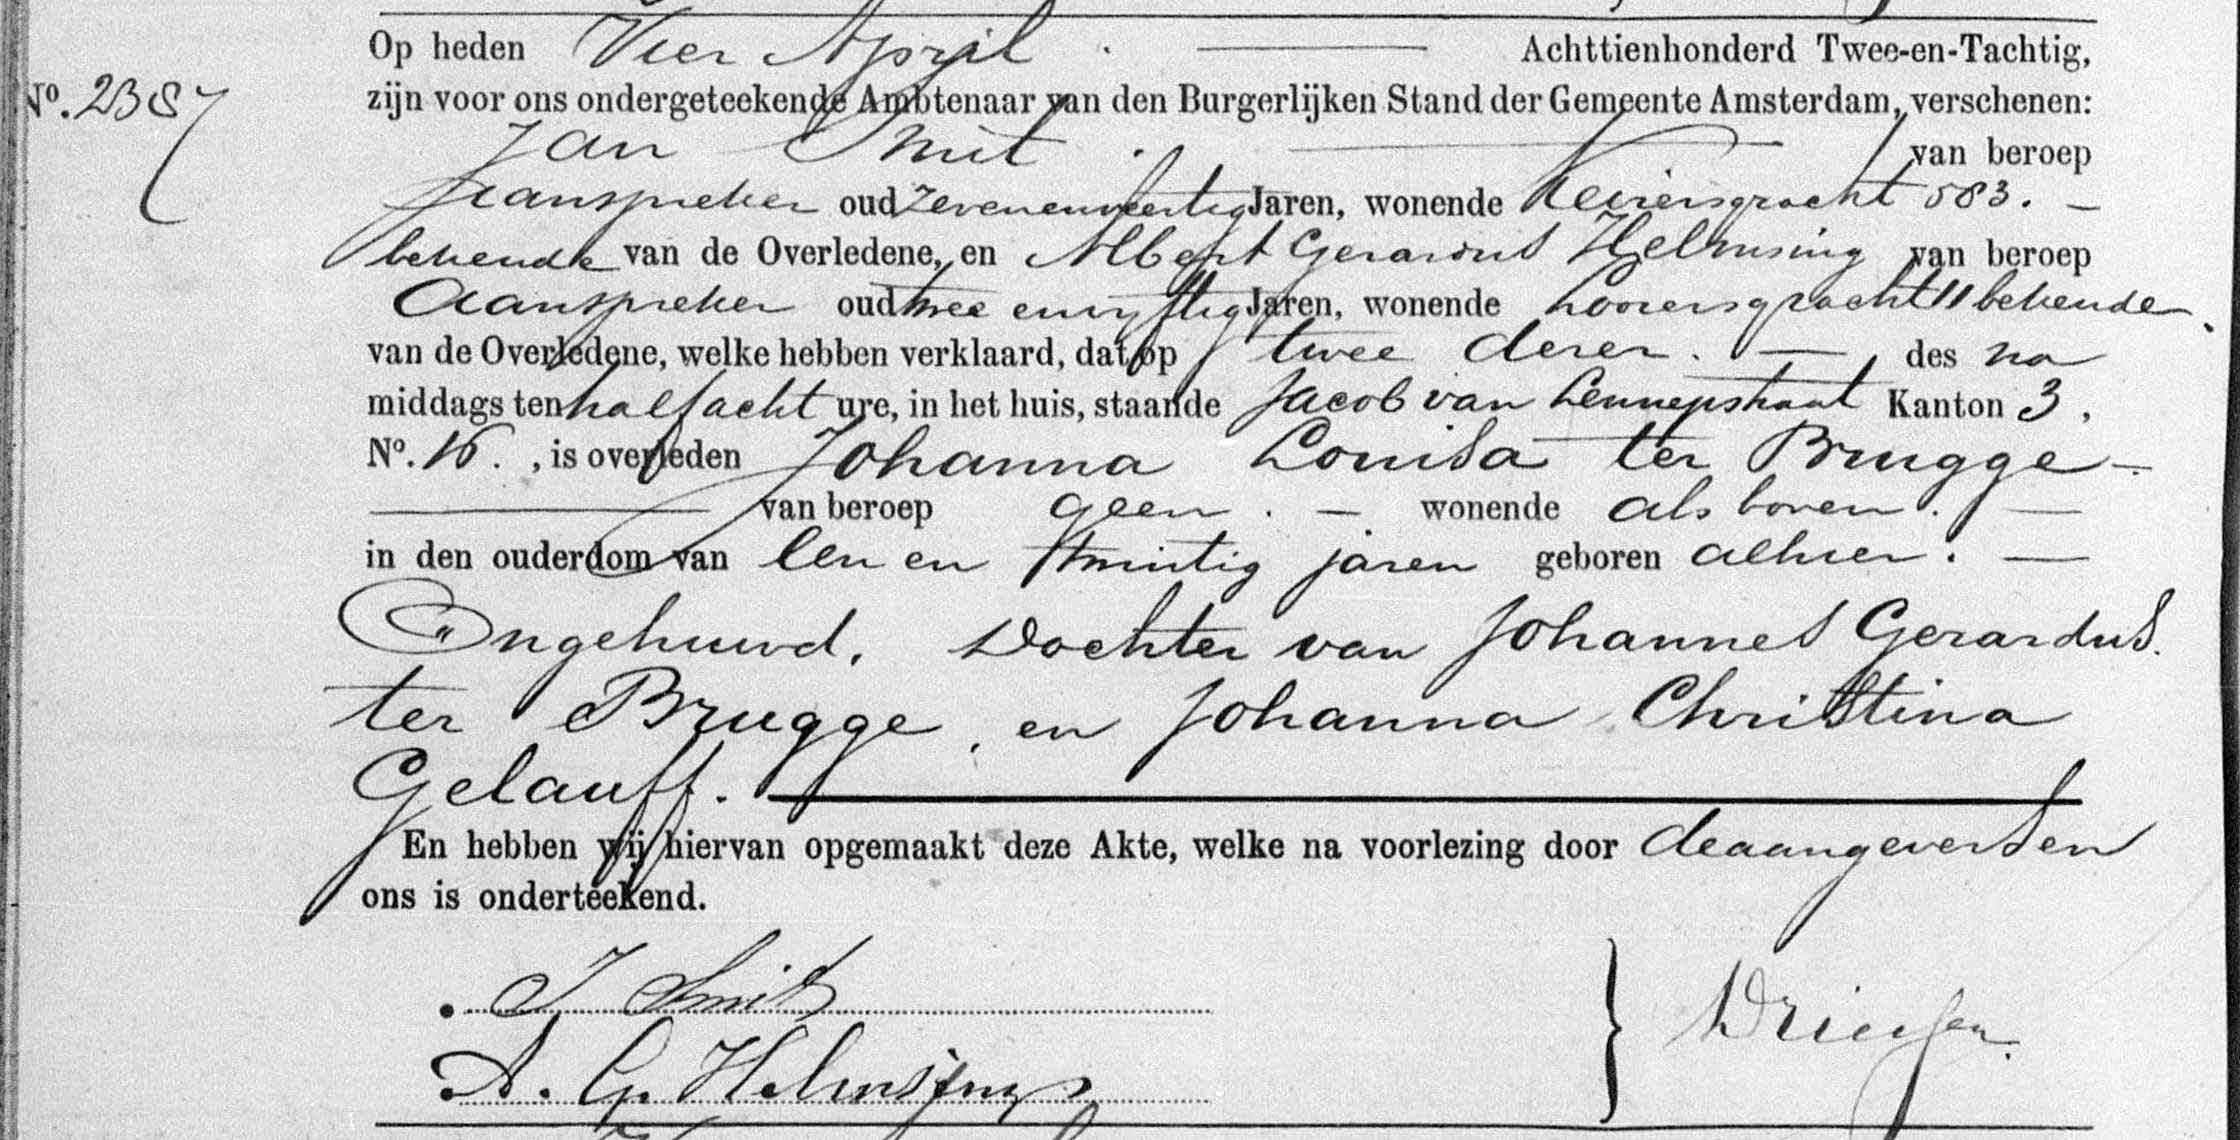 Op heden Vier April Achttienhonderd Twee-en-Tachtig,
No. 2387 zijn voor ons ondergeteekende Ambtenaar van den Burgerlijken Stand der Gemeente Amsterdam, verschenen:
Jan Smit van beroep
Aanspreker oud zevenenveertig Jaren, wonende Keizersgracht 583. –
bekende van de Overledene, en Albert Gerardus Helmsing van beroep
Aanspreker oud twee en vyftig Jaren, wonende Looiersgracht 11 bekende
van de Overledene, welke hebben verklaard, dat op twee dezer. — des na
middags ten half acht ure, in het huis, staande Jacob van Lennepstraat Kanton 3,
No. 16. , is overleden Johanna Louisa ter Brugge –
van beroep geen. – wonende als boven. —
in den ouderdom van Een en twintig jaren geboren alhier. —
Ongehuwd. Dochter van Johannes Gerardus
ter Brugge, en Johanna Christina
Gelauff.
En hebben wij hiervan opgemaakt deze Akte, welke na voorlezing door de aangevers en
ons is onderteekend.
J Smit
A. G. Helmsing